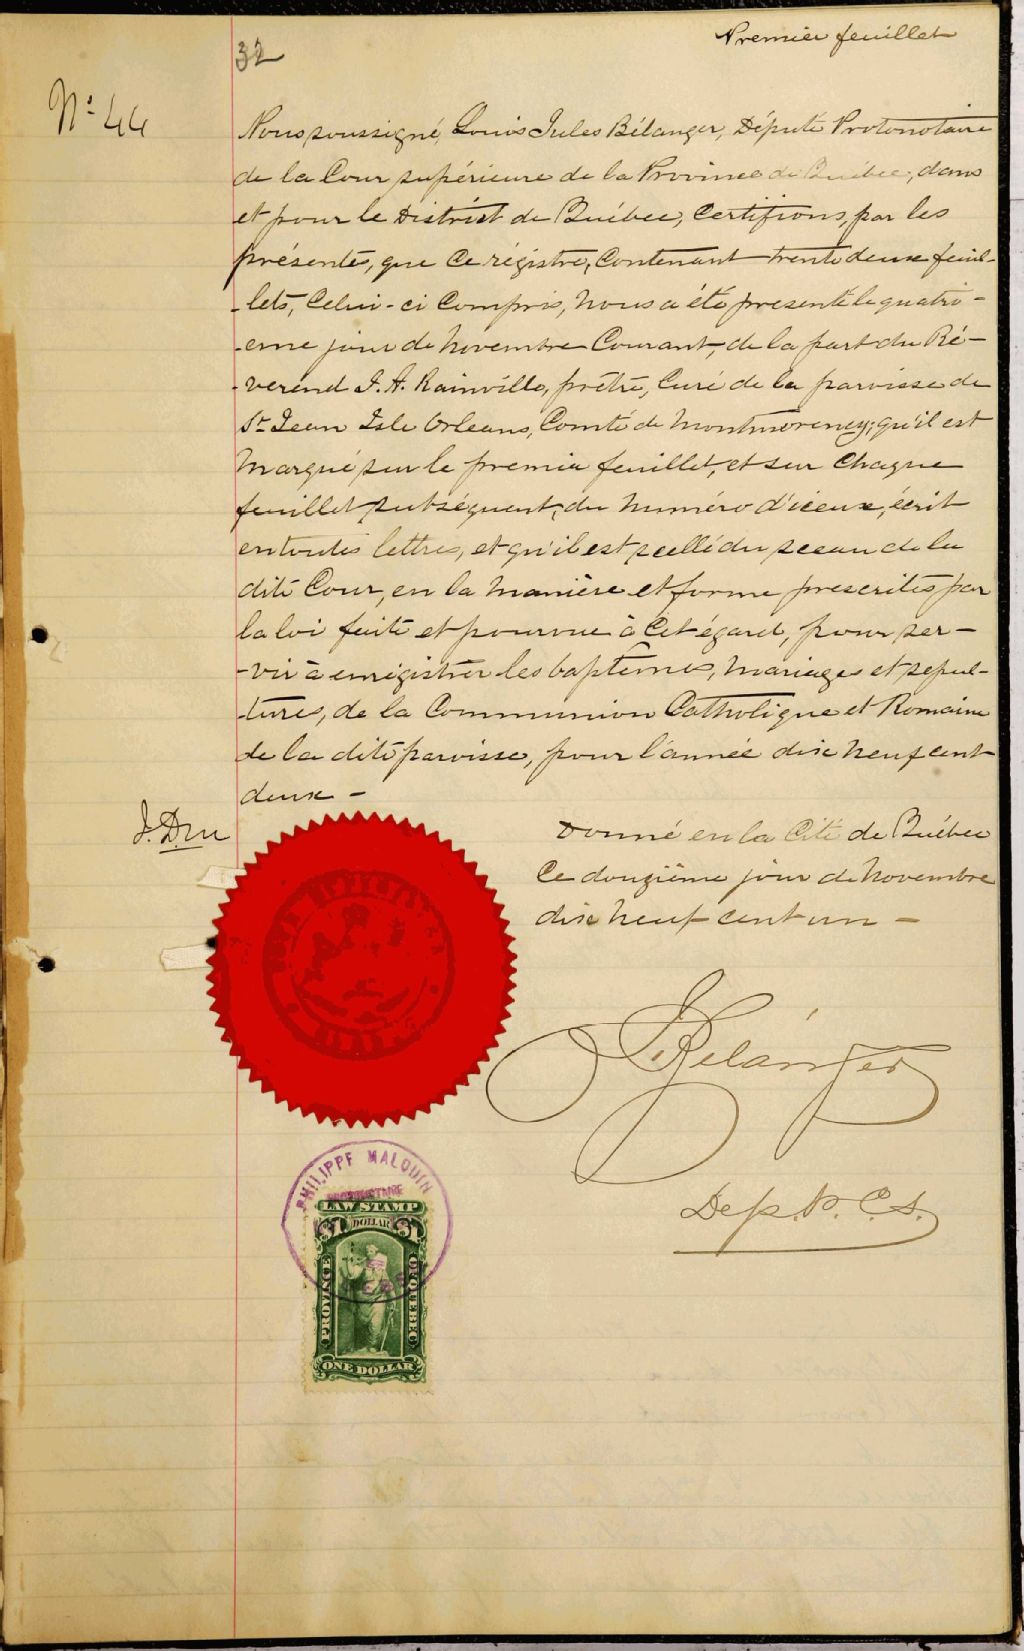 Premier feuillet
32
No. 44
Nous soussigné, Louis Jules Bélanger, Député Protonotaire
de la Cour supérieure de la Province de Québec, dans
et pour le District de Québec, Certifions, par les
présentes, que Ce régistre, Contenant trente deux feuil-
-lets, Celui-ci Compris, Nous a été presenté le quatri-
-eme jour de Novembre Courant, de la part du Ré-
-verend J. A. Rainville, prêtre, Curé de la paroisse de
St Jean Isle Orleans, Comté de Montmorency; qu'il est
Marqué sur le premier feuillet, et sur Chaque
feuillet subséquent, du Numéro d'iceux, écrit
en toutes lettres, et qu'il est scellé du sceau de la
dite Cour, en la Manière et forme prescrites par
la loi faite et pourvue à Cet égard, pour ser-
-vir à enrégistrer les baptêmes, Mariages et sepul-
-tures, de la Communion Catholique et Romaine
de la dite paroisse, pour l'année dix Neuf cent
deux -
Donné en la Cité de Québec
Ce douzième jour de Novembre
dix Neuf cent un -
Bélanger
Dep. P. C. S.
PHILIPPE MALOUIN
LAW STAMP
$1 DOLLAR $1
PROVINCE OF QUEBEC
ONE DOLLAR